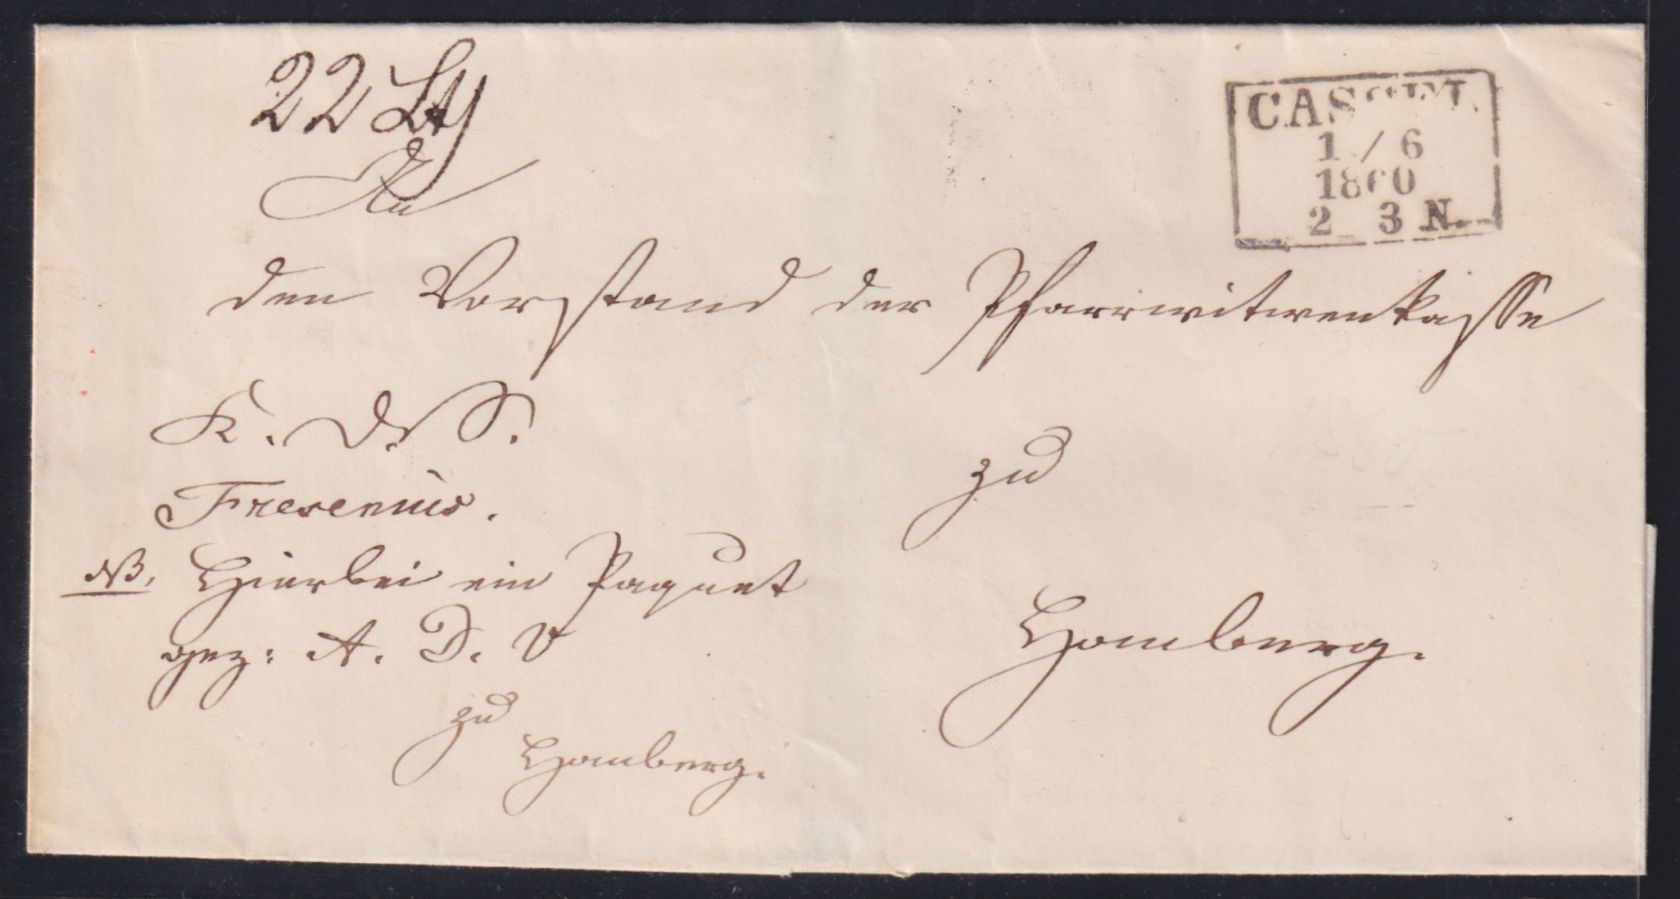 22 Lth
An
CASSEL
1 / 6
1860
2 3 N.
den Vorstand der Pfarrwitwenkasse
K. D. S.
Fresenius.
zu
NB. Hierbei ein Paquet
gez: A. D. V
Homberg.
zu
Homberg.